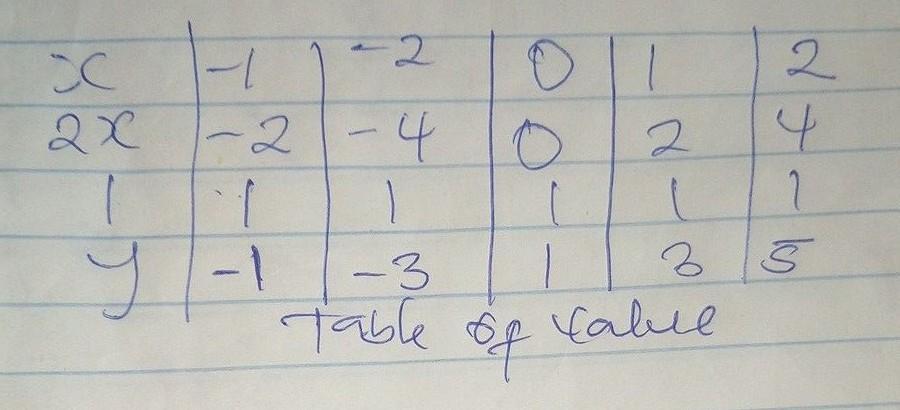 x -1 -2 0 1 2
2x -2 -4 0 2 4
1 1 1 1 1 1
y -1 -3 1 3 5
Table of value